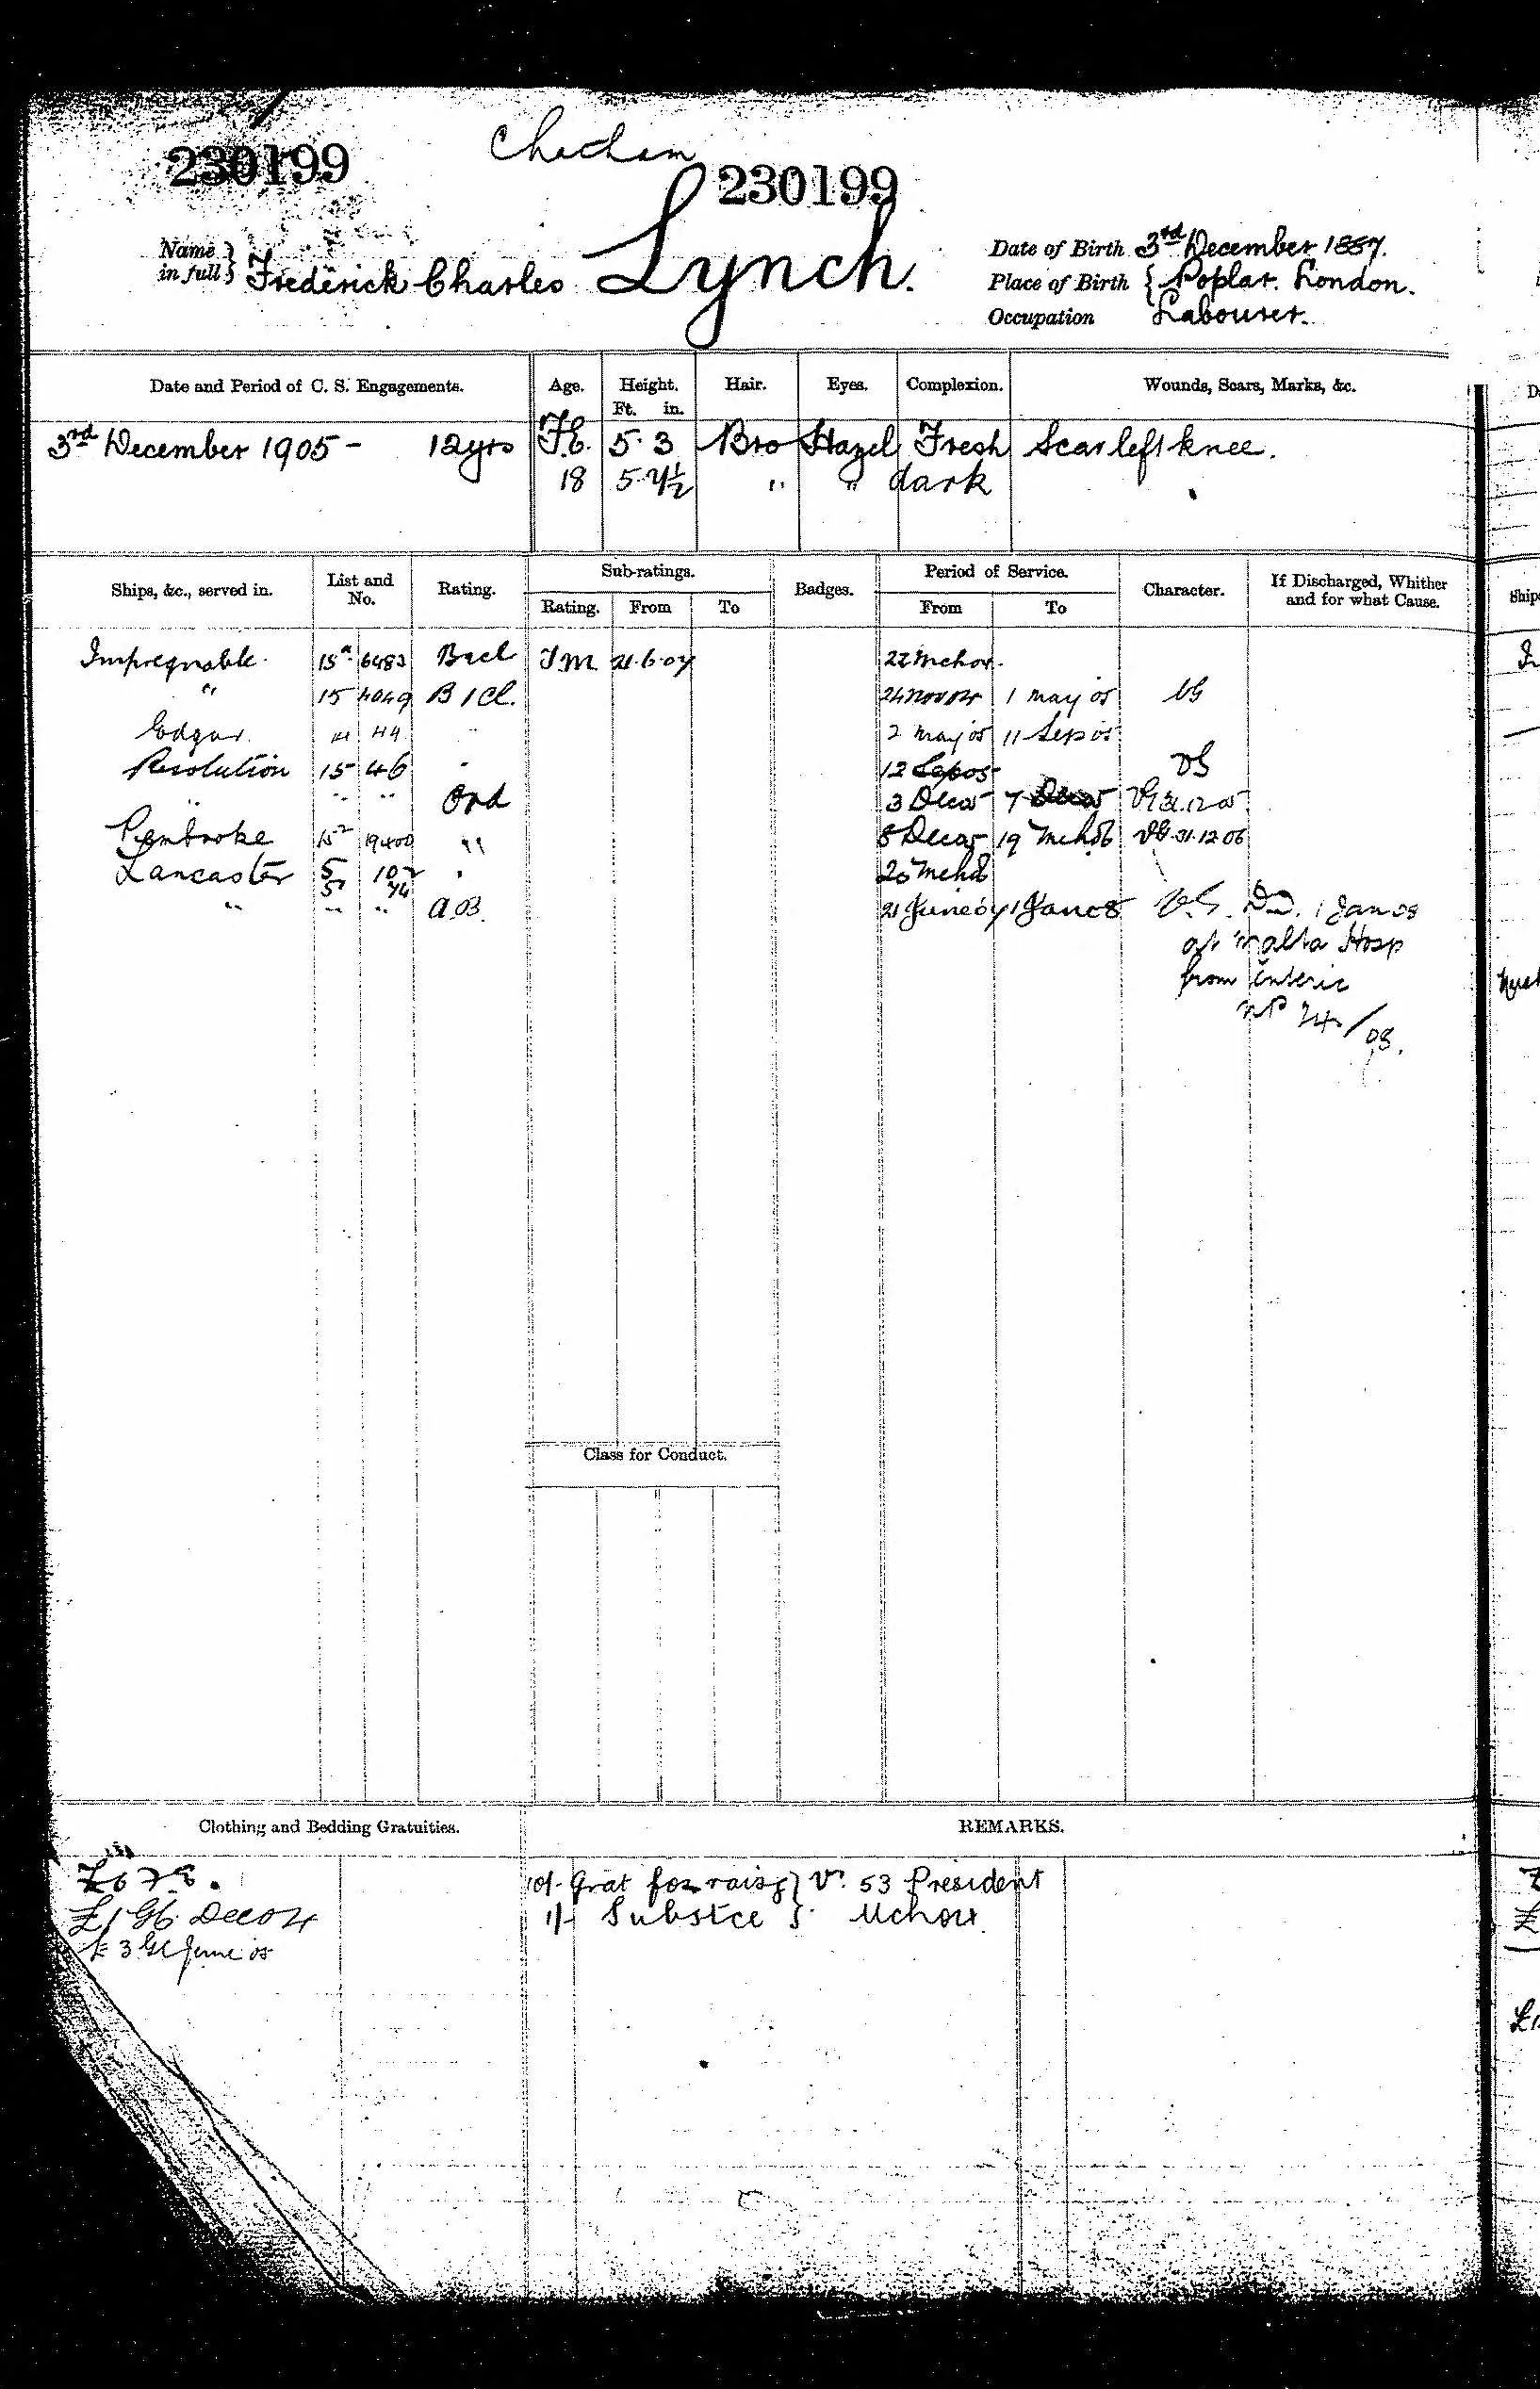 Chatham
230199 230199
Name in full } Frederick Charles Lynch.
Date of Birth 3rd December 1887.
Place of Birth { Poplar. London.
Occupation Labourer.
Date and Period of C. S. Engagements. Age. Height. Ft. in. Hair. Eyes. Complexion. Wounds, Scars, Marks, &c.
3rd December 1905 - 12yrs F.E. 5.3 Bro Hazel Fresh Scar left knee.
18 5.4½ " " dark
Ships, &c., served in. List and No. Rating. Sub-ratings. Badges. Period of Service. Character. If Discharged, Whither and for what Cause.
Rating. From To From To
Impregnable. 15A 6483 B2cl T.M. 21.6.07 22 Mch04.
" 15 4049 B 1 Cl. 24 Nov 04 1 May 05 VG
Edgar 44 " 2 May 05 11 Sep 05
Resolution 15 46 " 12 Sep 05 VG
" " " Ord 3 Dec 05 7 Dec 05 VG 31.12.05
Pembroke 15² 19400 " 8 Dec 05 19 Mch 06 VG. 31.12.06
Lancaster 5 102 " 20 Mch 06
5 74
" " " A.B. 21 June 07 1 Jan 08 V.G. D.D. 1 Jan 08
at Malta Hosp
from Enteric
NP 74/08.
Class for Conduct.
Clothing and Bedding Gratuities. REMARKS.
10/- Grat for raisg } Vr. 53 President
1/- Substce } Mch04
£1 Gb. Dec 04
£3 Gb June 05